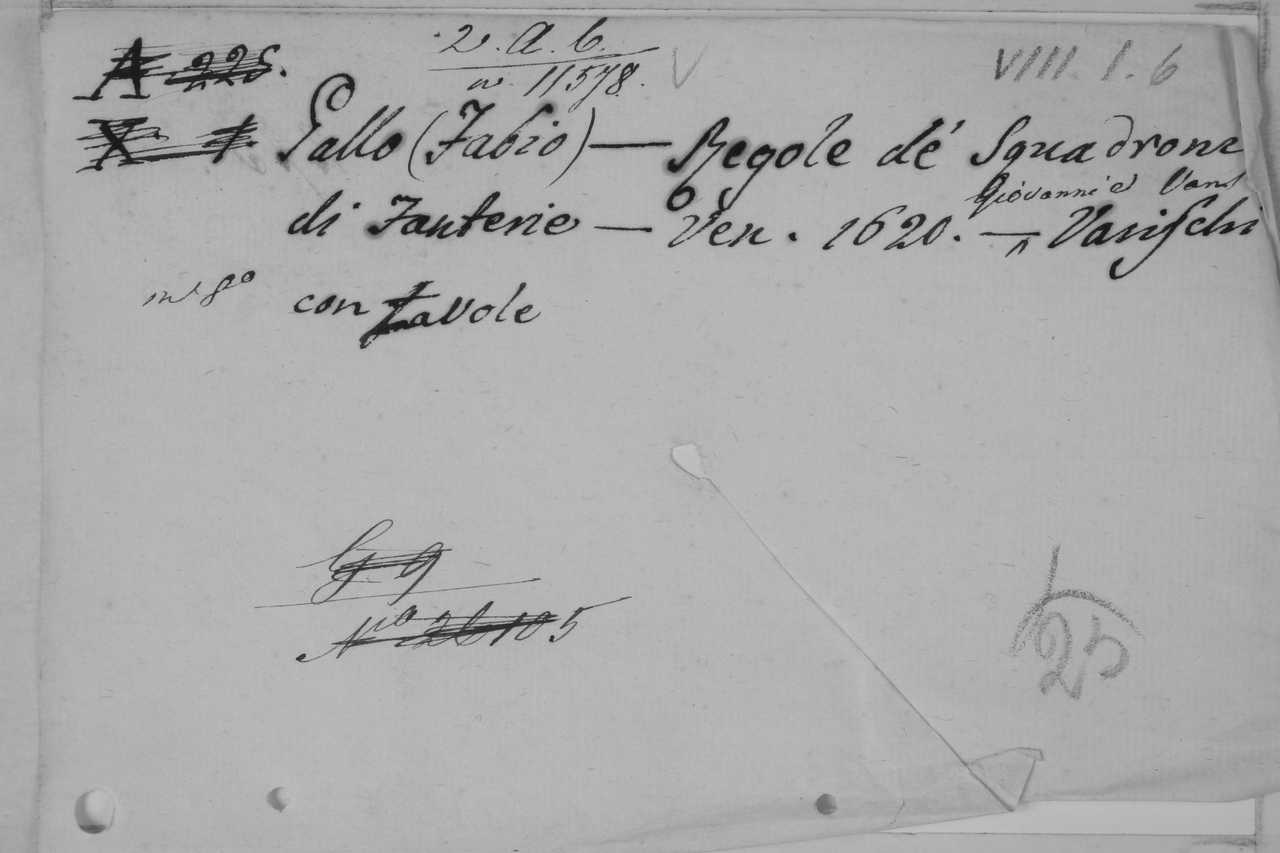 A 225.
2. A. 6.
n. 11578.
V
VIII. 1. 6
X 1 Gallo (Fabio) — Regole de' Squadroni
Giovanni e
di Fanterie — Ven. 1620. — Varisch
in 8º con tavole
G. 9
Nº 26105
25